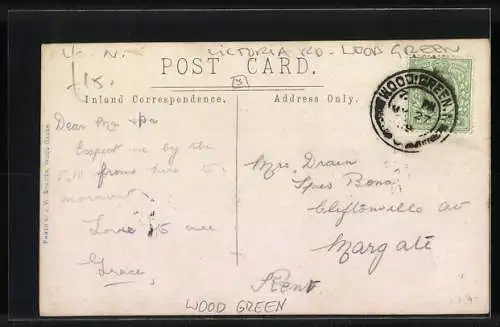 V. N. VICTORIA RD. WOOD GREEN
£15.
POST CARD.
Inland Correspondence.
Address Only.
WOOD GREEN. N
Dear Ma & Pa
Expect me by the
5.10 from here to
morrow
Love to all
Grace
Mrs Drain
"Spes Bona"
Cliftonville av
Margate
Kent
WOOD GREEN